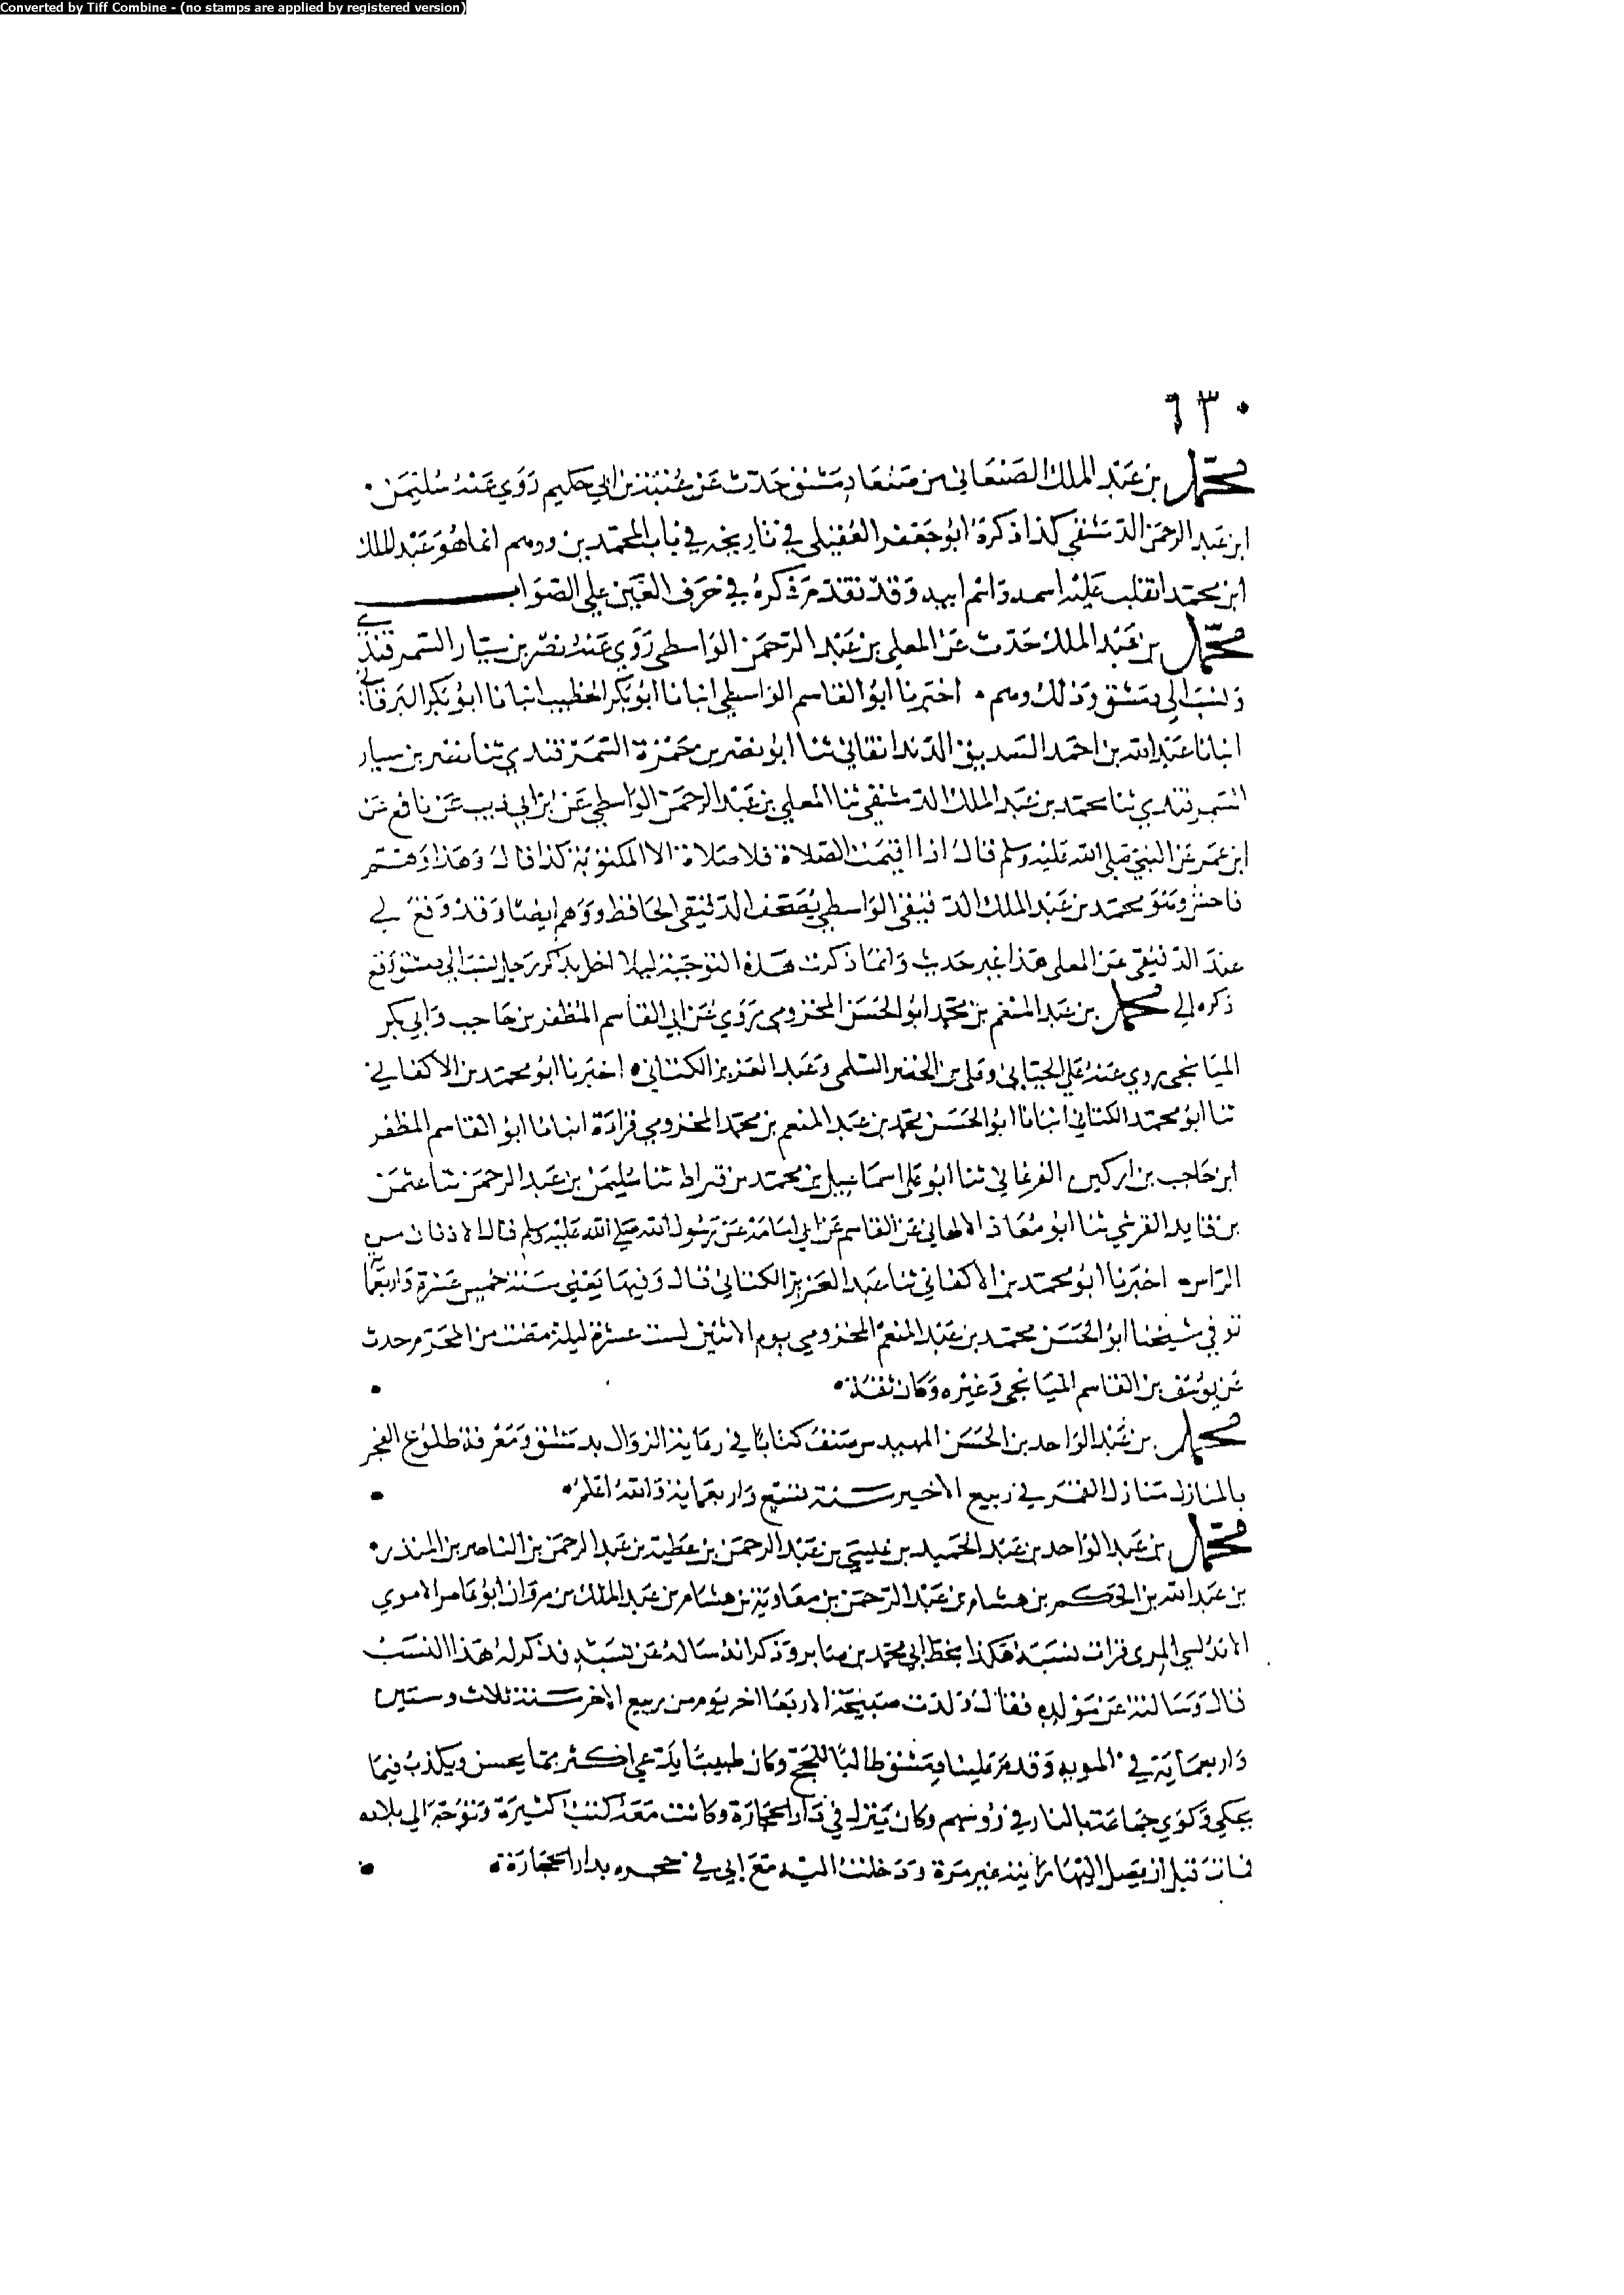 Converted by Tiff Combine - (no stamps are applied by registered version)
٦٣٠
محمد بن عبد الملك الصنعاني من صنعا دمشق حدث عن عنبسة بن ابي حكيم روي عنه سليمن
ابن عبد الرحمن الدمشقي كذا ذكره ابو جعفر العقيلي في تاريخه في باب المحمدين ووهم انما هو عبد الملك
ابن محمد انقلب عليه اسمه واسم ابيه وقد تقدم ذكره في حرف العين علي الصواب
محمد بن عبد الملك حدث عن المعلي بن عبد الرحمن الواسطي روي عنه نصر بن سيار السمرقندي
ونسب الي دمشق وذلك وهم اخبرنا ابو القاسم الواسطي انبانا ابو بكر الخطيب انبانا ابو بكر البرقاني
انبانا عبد الله بن احمد الصديق الدندانقاني ثنا ابو نصر بن حمزة السمرقندي ثنا نصر بن سيار
السمرقندي ثنا محمد بن عبد الملك الدمشقي ثنا المعلي بن عبد الرحمن الواسطي عن ابن ابي ذيب عن نافع عن
ابن عمر عن النبي صلي الله عليه وسلم قال اذا اقيمت الصلاة فلا صلاة الا المكتوبة كذا قال وهذا وهم
فاحش وهو محمد بن عبد الملك الدقيقي الواسطي يصحف الدقيقي الحافظ ووهم ايضا وقد وقع لي
عند الدقيقي عن المعلي هذا غير حديث وانما ذكرت هذه الترجمة ليلا اخل بذكر رجل نسب الي دمشق وقع
ذكره الي محمد بن عبد المنعم بن محمد ابو الحسن المخزومي روي عن ابي القاسم المظفر بن حاجب وابي بكر
الميانجي روي عنه علي الحنابي وعلي بن الخضر السلمي وعبد العزيز الكتاني اخبرنا ابو محمد بن الاكفاني
ثنا ابو محمد الكتاني انبانا ابو الحسن محمد بن عبد المنعم بن محمد المخزومي قراءة انبانا ابو القاسم المظفر
ابن حاجب بن اركين الفرغاني ثنا ابو علي اسماعيل بن محمد بن قيراط ثنا سليمن بن عبد الرحمن ثنا عثمن
بن فايد القرشي ثنا ابو معاذ الالهاني عن القاسم عن ابي امامة عن رسول الله صلي الله عليه وسلم قال الاذنان من
الراس اخبرنا ابو محمد بن الاكفاني ثنا عبد العزيز الكتاني قال وفيها يعني سنة خمس عشرة واربعمائة
توفي شيخنا ابو الحسن محمد بن عبد المنعم المخزومي يوم الاثنين لست عشرة ليلة مضت من المحرم حدث
عن يوسف بن القاسم الميانجي وغيره وكان ثقة
محمد بن عبد الواحد بن الحسن المهندس صنف كتابا في رماية الزوال بدمشق ومعرفة طلوع الفجر
بالمنازل منازل القمر في ربيع الاخير سنة تسع واربعماية والله اعلم
محمد بن عبد الواحد بن عبد الحميد بن عيسي بن عبد الرحمن بن عطية بن عبد الرحمن بن الناصر بن المنذر
بن عبد الله بن الحكم بن هشام بن عبد الرحمن بن معاوية بن هشام بن عبد الملك بن مروان ابو عامر الاموي
الاندلسي المري قرات نسبه هكذا بخط ابي محمد بن صابر وذكر انه ساله عن نسبه فذكر له هذا النسب
قال وسالته عن مولده فقال ولدت صبيحة الاربعا اخر يوم من ربيع الاخر سنة ثلاث وستين
واربعماية في المرية وقدم علينا دمشق طالبا للحج وكان طبيبا يدعي اكثر مما يحسن ويكذب فيما
يحكي وكوي جماعة بالنار في رؤسهم وكان ينزل في دار الحجارة وكانت معه كتب كثيرة وتوجه الي بلاده
فمات قبل ان يصل اليها رايته غير مرة ودخلت اليه مع ابي في حجره بدار الحجارة